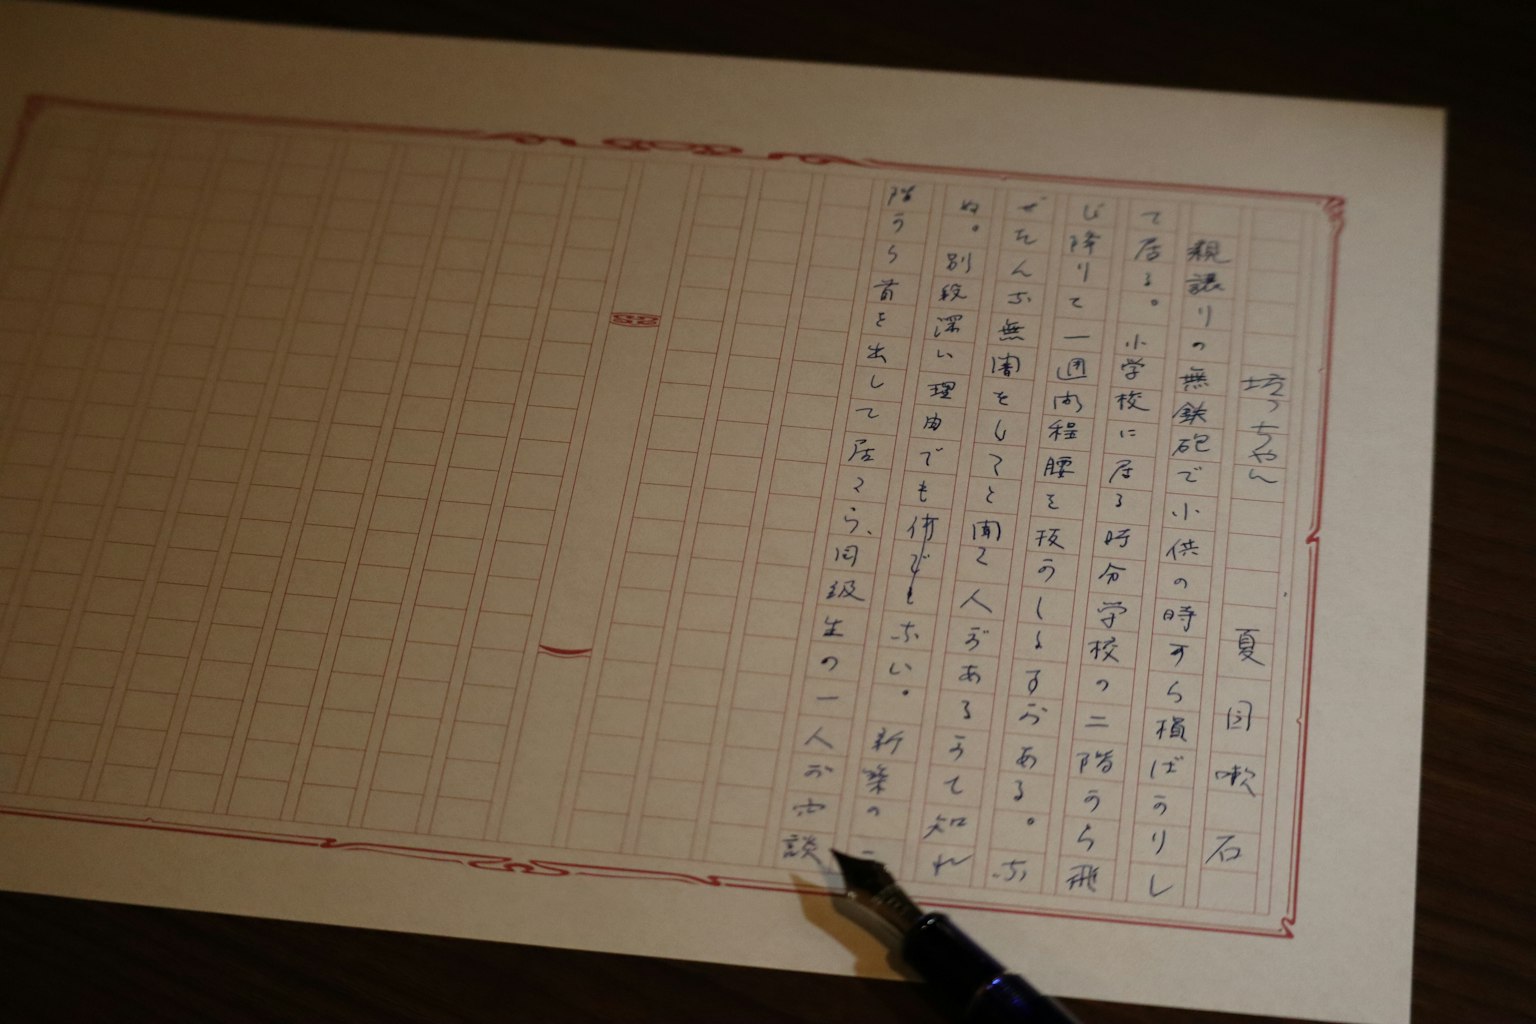 坊っちゃん　夏目漱石
親譲りの無鉄砲で小供の時から損ばかりし
て居る。小学校に居る時分学校の二階から飛
び降りて一週間程腰を抜かした事がある。な
ぜそんな無闇をしたと聞く人があるかも知れ
ぬ。別段深い理由でも何でもない。新築の二
階から首を出して居たら、同級生の一人が冗談